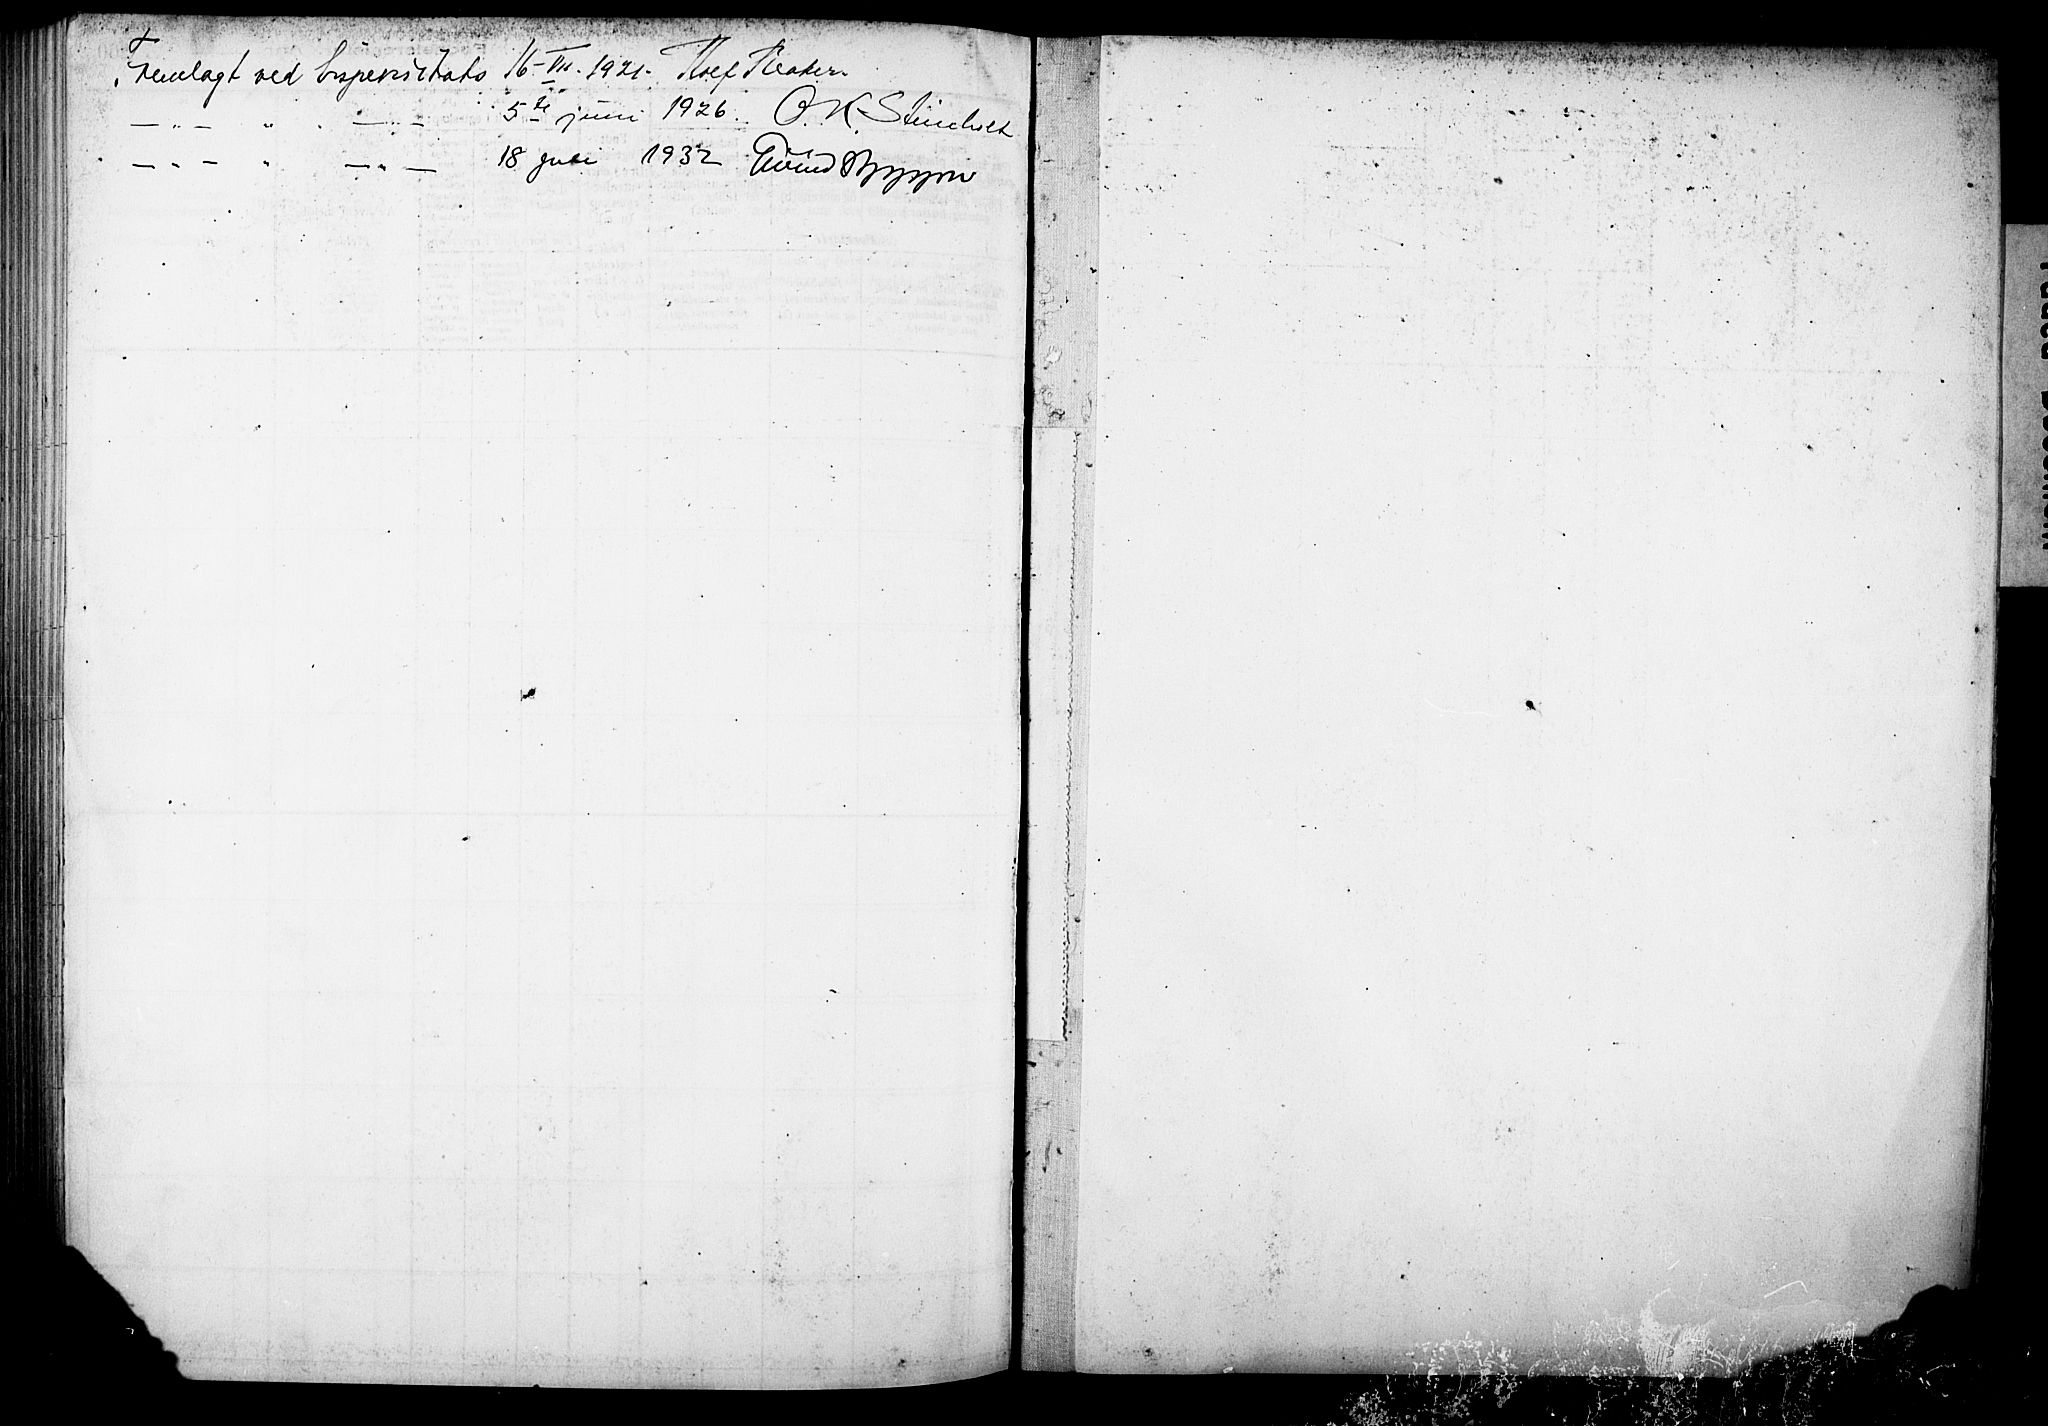 Fremlagt ved bispevisitats 16-VII-1921.
— " — " " — " — 5te juni 1926. O. K. Steinholt
— " — " — " — 18 juni 1932 Eivind Berggrav